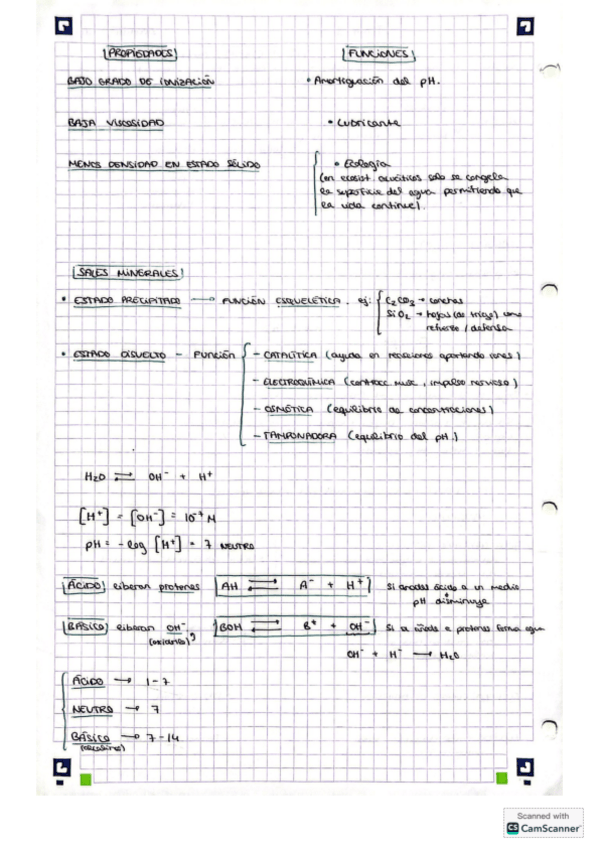 PROPIEDADES
FUNCIONES
BAJO GRADO DE IONIZACIÓN
• Amortiguación del pH.
BAJA VISCOSIDAD
• Lubricante
MENOS DENSIDAD EN ESTADO SÓLIDO
• Ecología
(en ecosist. acuáticos solo se congela
la superficie del agua permitiendo que
la vida continue).
SALES MINERALES
• ESTADO PRECIPITADO → FUNCIÓN ESQUELÉTICA. ej:
C₂CO₃ → conchas
SiO₂ → hojas (de trigo) como
refuerzo / defensa
• ESTADO DISUELTO - FUNCIÓN
- CATALÍTICA (ayuda en reacciones aportando iones)
- ELECTROQUÍMICA (contracc musc, impulso nervioso)
- OSMÓTICA (equilibrio de concentraciones)
- TAMPONADORA (equilibrio del pH.)
H₂O ⇌ OH⁻ + H⁺
[H⁺] = [OH⁻] = 10⁻⁷ M
pH = - log [H⁺] = 7 NEUTRO
ÁCIDO liberan protones AH ⇌ A⁻ + H⁺ Si añades ácido a un medio
pH disminuye
BÁSICO liberan OH⁻ BOH ⇌ B⁺ + OH⁻ Si se añade a protones forma agua
OH⁻ + H⁻ → H₂O
ÁCIDO → 1-7
NEUTRO → 7
BÁSICO → 7-14
Scanned with
CS CamScanner